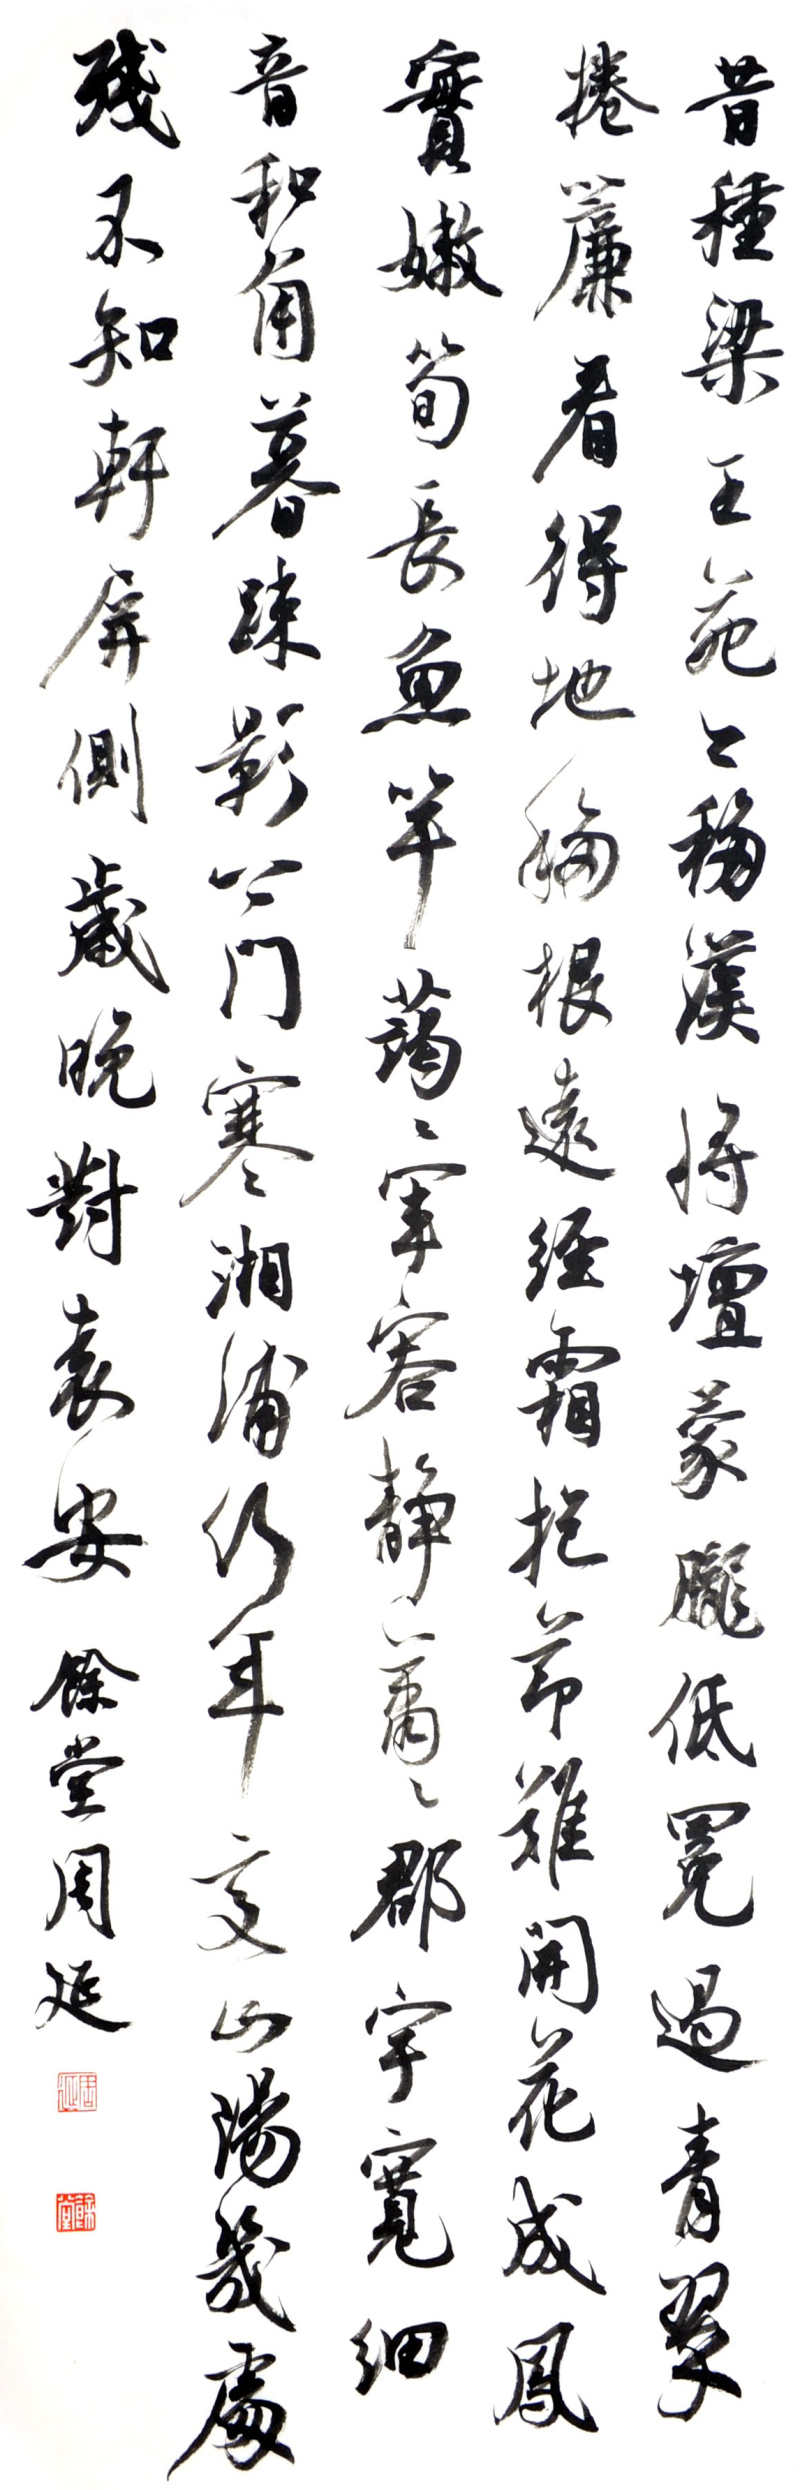 昔種梁王苑今移漢將壇蒙朧低冕過青翠
捲簾看得地移根遠經霜抱節難開花成鳳
實嫩筍長魚竿藹〻軍容靜蕭〻郡宇寬細
音和角暮踈影公門寒湘浦何年變山陽幾處
殘不知軒屏側歲晚對袁安 餘堂周延
周延
餘堂